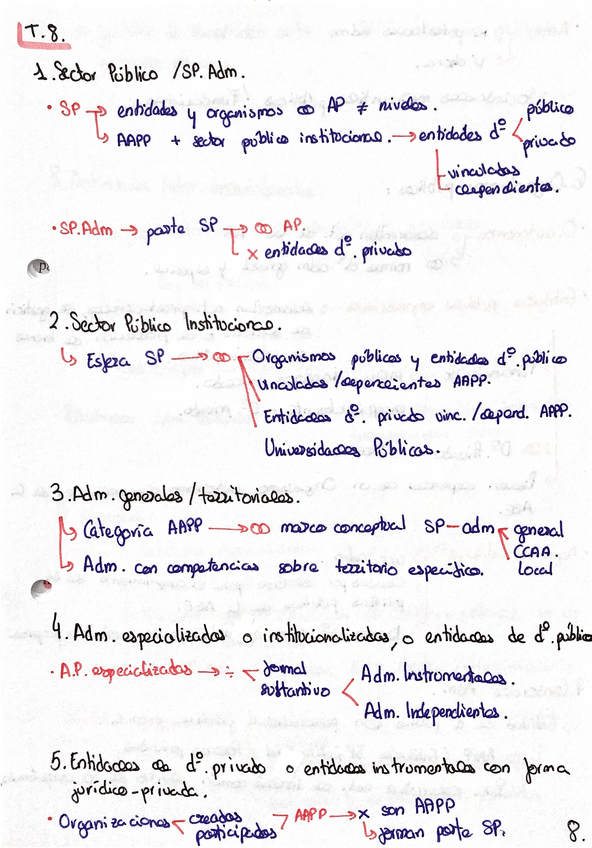 T.8.
1. Sector Público / SP. Adm.
• SP → entidades y organismos ∞ AP ≠ niveles.
↳ AAPP + sector público institucional. → entidades dº. < público
privado
vinculadas
dependientes.
• SP. Adm → parte SP → ∞ AP.
x entidades dº. privado
2. Sector Público Institucional.
↳ Esfera SP → ∞ Organismos públicos y entidades dº. público
vinculadas / dependientes AAPP.
Entidades dº. privado vinc. / depend. AAPP.
Universidades Públicas.
3. Adm. generales / territoriales.
↳ Categoría AAPP → ∞ marco conceptual SP – adm general
CCAA.
local
↳ Adm. con competencias sobre territorio específico.
4. Adm. especializadas o institucionalizadas, o entidades de dº. público
• A.P. especializadas → ÷ < formal
sustantivo < Adm. Instrumentales.
Adm. Independientes.
5. Entidades de dº. privado o entidades instrumentales con forma
jurídico-privada.
• Organizaciones < creadas
participadas > AAPP → x son AAPP
↳ forman parte SP.
8.